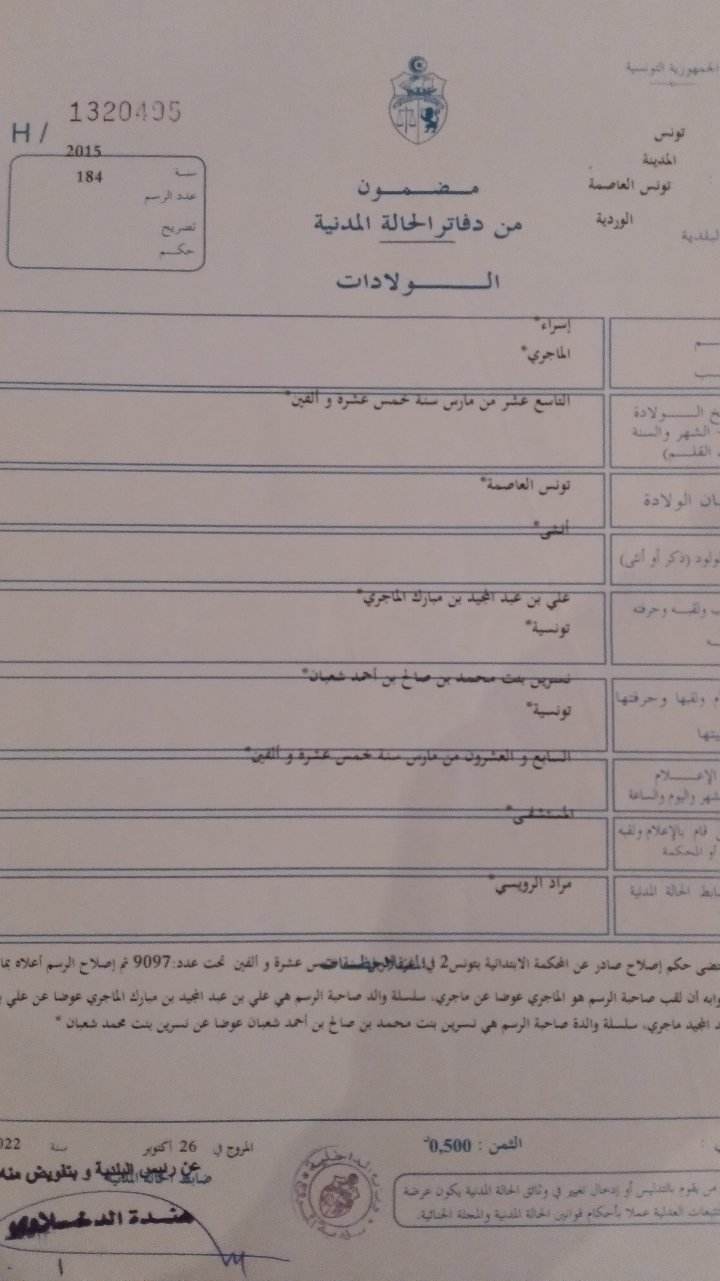 الجمهورية التونسية
تونس
المدينة
تونس العاصمة
الوردية
H / 1320495
2015
سنة
184
عدد الرسم
تصريح
حكم
مضمون
من دفاتر الحالة المدنية
الولادات
إسراء*
الماجري*
التاسع عشر من مارس سنة خمس عشرة و ألفين*
الولادة
الشهر والسنة
القلم)
تونس العاصمة*
الولادة
أنثى*
(ذكر أو أنثى)
علي بن عبد المجيد بن مبارك الماجري*
ولقبه وحرفته
تونسية*
نسرين بنت محمد بن صالح بن أحمد شعبان*
ولقبها وحرفتها
تونسية*
السابع و العشرون من مارس سنة خمس عشرة و ألفين*
الإعلام
واليوم والساعة
المستشفى*
قام بالإعلام ولقبه
أو المحكمة
مراد الرويسي*
الحالة المدنية
حكم إصلاح صادر عن المحكمة الابتدائية بتونس2 في عشرة و ألفين تحت عدد:9097 تم إصلاح الرسم أعلاه
أن لقب صاحبة الرسم هو الماجري عوضا عن ماجري، سلسلة والد صاحبة الرسم هي علي بن عبد المجيد بن مبارك الماجري عوضا عن علي
المجيد ماجري، سلسلة والدة صاحبة الرسم هي نسرين بنت محمد بن صالح بن أحمد شعبان عوضا عن نسرين بنت محمد شعبان *
الثمن : 0,500
المروج في 26 أكتوبر سنة
ضابط الحالة المدنية
عن رئيس البلدية و بتفويض منه
هندة
من يقوم بالتدليس أو إدخال تغيير في وثائق الحالة المدنية يكون عرضة
للتتبعات العدلية عملا بأحكام قوانين الحالة المدنية والمجلة الجنائية.